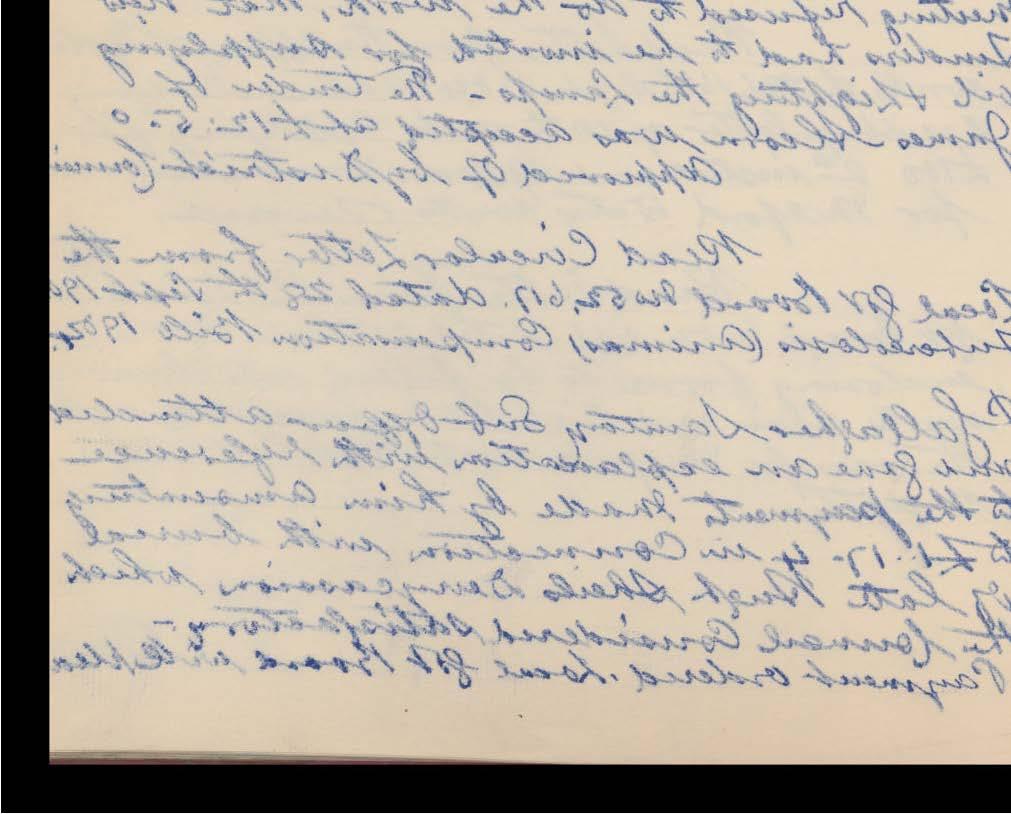 meeting refused to do the work, that new
Tenders had to be invited for supplying
oil & Lighting the Lamps - The tender of
James was accepted at £12. 5. 0
Approved of by District Council
Read Circular Letter from the
Local Gov Board No 52,617. dated 28th Sept 190
Tuberculosis (Animals) Compensation Bill 1904.
Gallagher Sanitary Sub-Officer attended
and gave an explanation with reference
to the payments made by him amounting
to £1. 17. 4 in Connection with burial
of late Hugh Sheils Derrycassion which
the Council Considered satisfactory -
Payment ordered. Local Gov Board